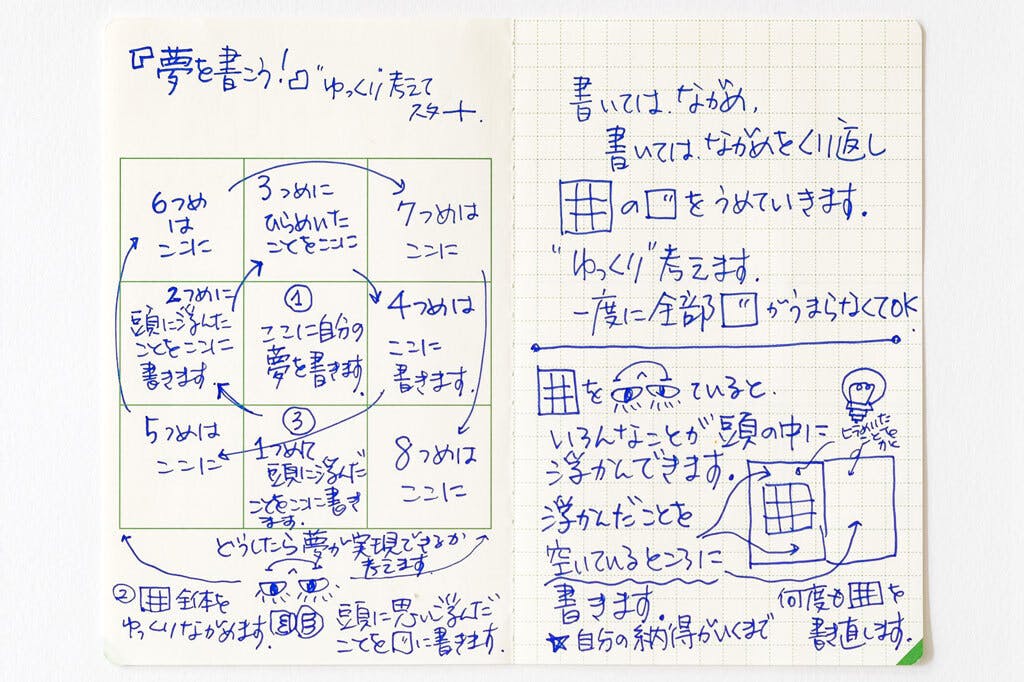 『夢を書こう!』"ゆっくり"考えて
スタート.
6つめ
は
ここに
3つめに
ひらめいた
ことをここに
7つめは
ここに
2つめに
頭に浮んだ
ことをここに
書きます.
①
ここに自分の
夢を書きます.
4つめは
ここに
書きます.
5つめは
ここに
③
1つめて
頭に浮んだ
ことをここに書き
ます.
8つめは
ここに
どうしたら夢が実現できるか
考えます
② 全体を
ゆっくりながめます.
頭に思い浮んだ
ことを に書きます.
書いては、ながめ,
書いては、ながめをくり返し
の をうめていきます.
"ゆっくり"考えます.
一度に全部 がうまらなくてOK.
を ていると、
いろんなことが頭の中に
浮かんできます.
浮かんだことを
空いているところに
書きます.
ヒラめいた
ことを
★自分の納得がいくまで
何度も を
書き直します.